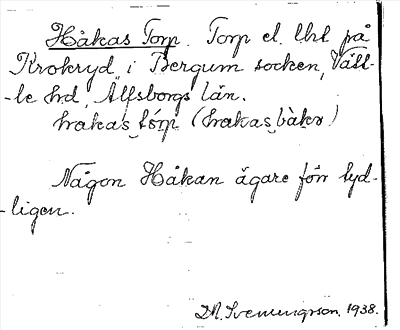 Håkas Torp. Torp el. lht på
Krokryd i Bergum socken, Vätt-
-le hd, Älfsborgs län.
hakas torp (hakas bàkɘ)
Någon Håkan ägare förr tyd-
-ligen.
M. Svenungsson. 1938.